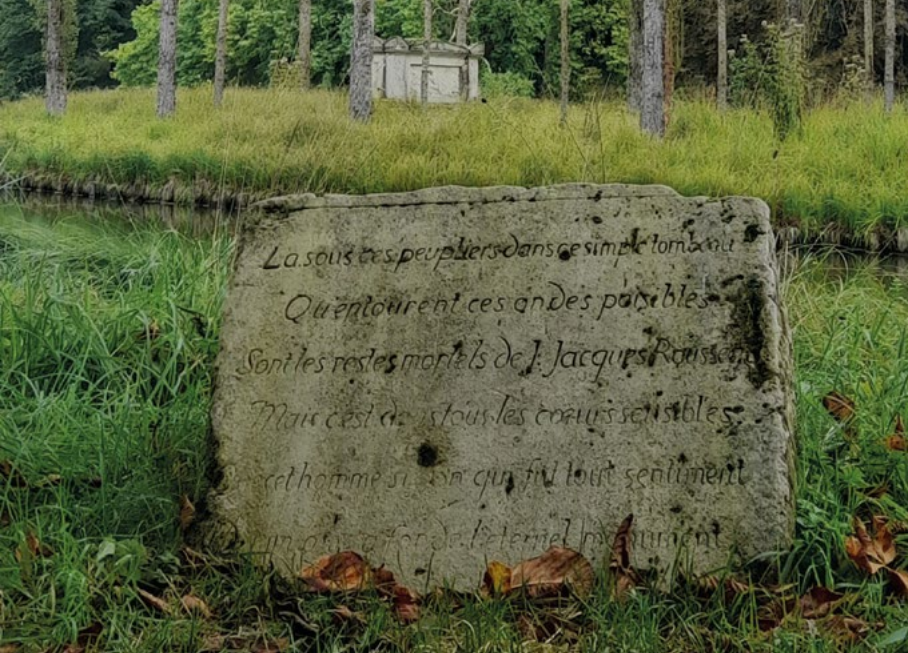 La sous ces peupliers dans ce simple tombeau
Qu'entourent ces ondes paisibles
Sont les restes mortels de J. Jacques Rousseau
Mais c'est dans tous les cœurs sensibles
cet homme si bon qui fut tout sentiment
fondé l'eternel monument